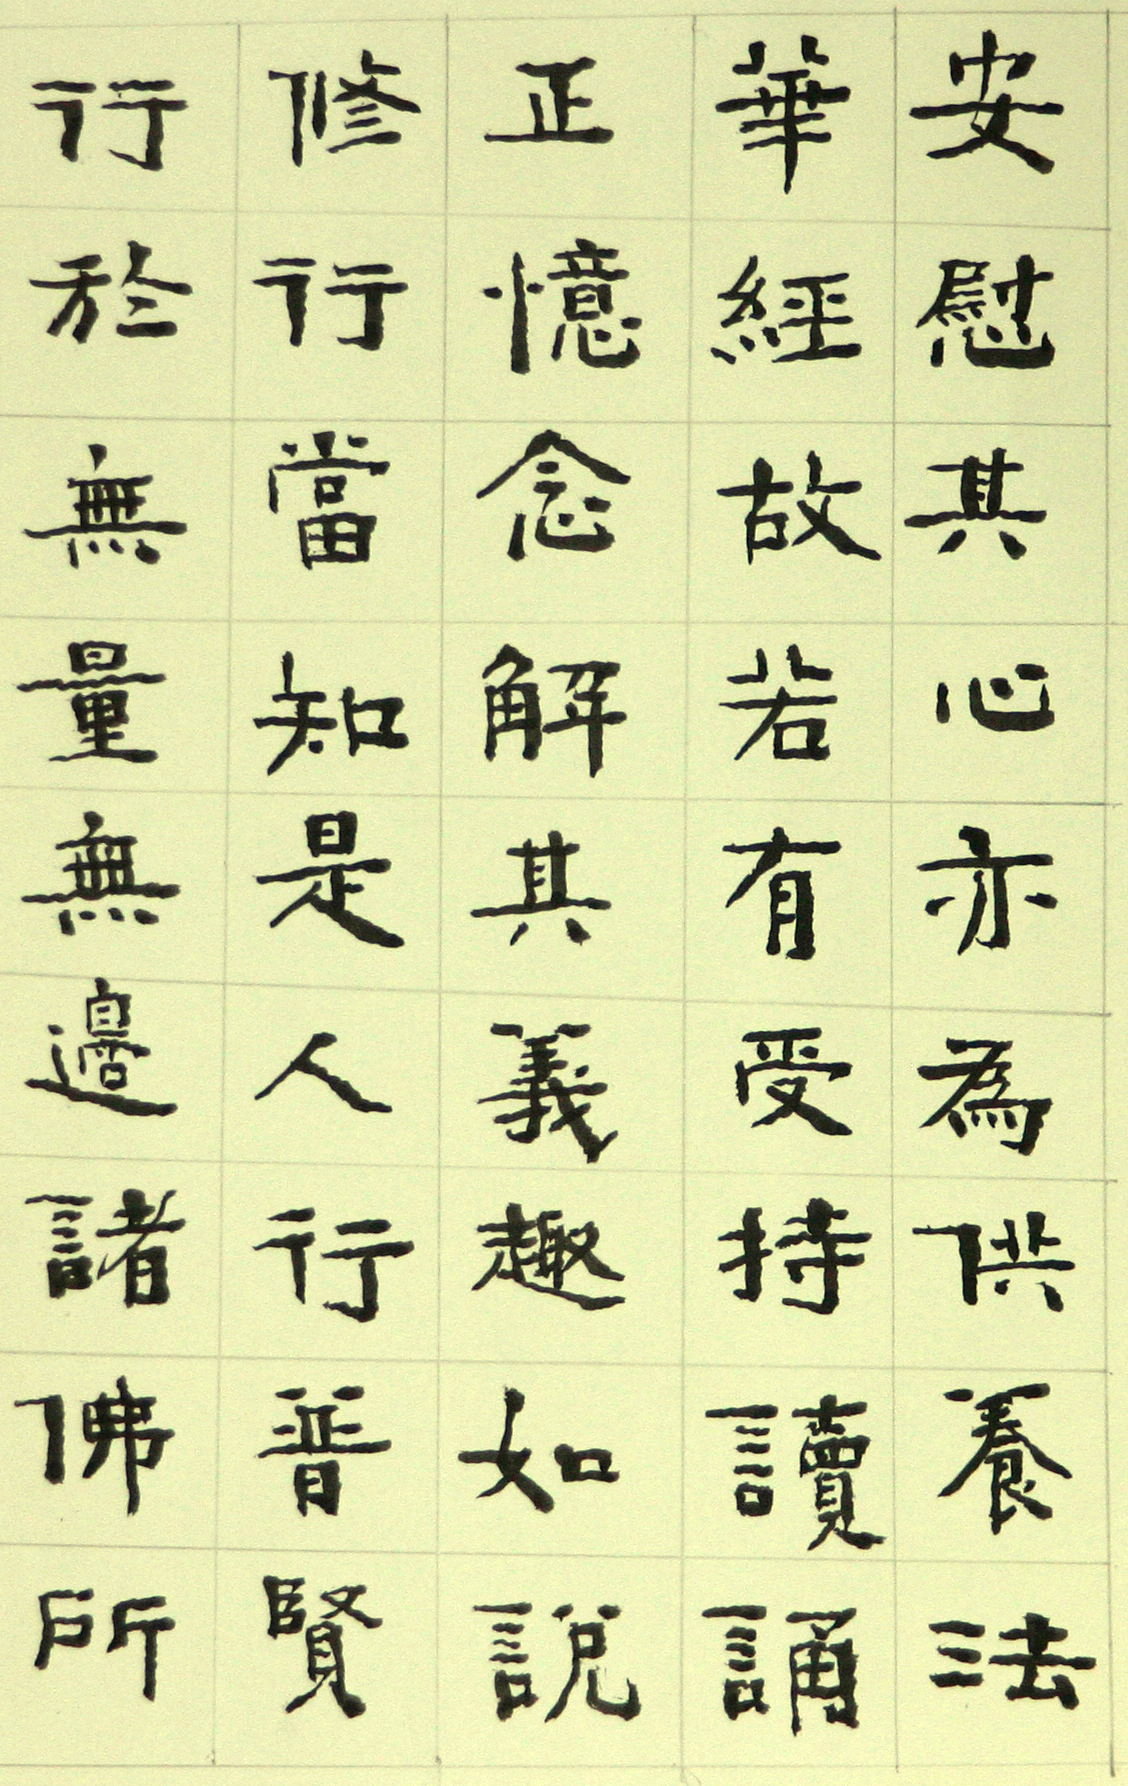 安慰其心亦為供養法
華經故若有受持讀誦
正憶念解其義趣如說
修行當知是人行普賢
行於無量無邊諸佛所